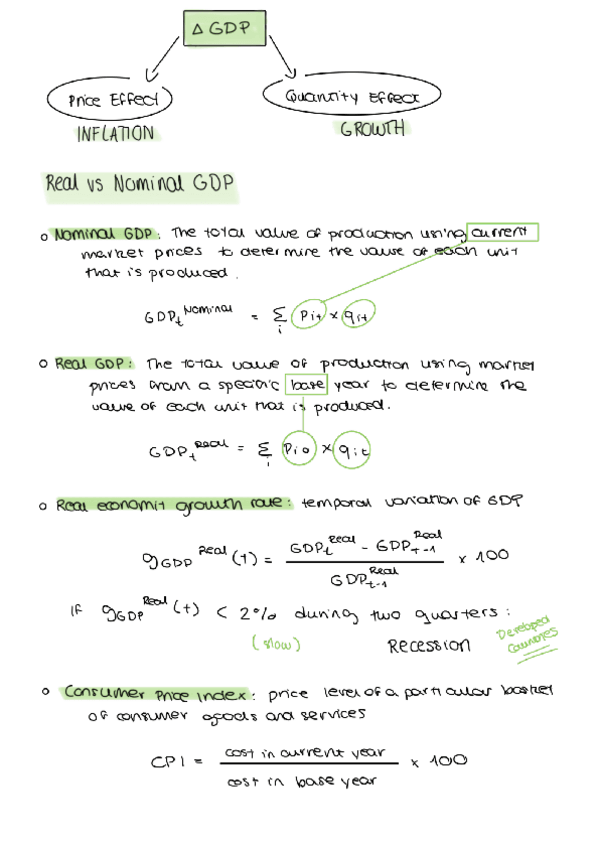 Δ GDP
Price Effect
Quantity Effect
INFLATION
GROWTH
Real vs Nominal GDP
o Nominal GDP: The total value of production using current
market prices to determine the value of each unit
that is produced.
GDP_t^Nominal = Σ_i P_it × q_it
o Real GDP: The total value of production using market
prices from a specific base year to determine the
value of each unit that is produced.
GDP_t^Real = Σ_i P_i0 × q_it
o Real economic growth rate: temporal variation of GDP
g_GDP^Real (t) = (GDP_t^Real - GDP_t-1^Real) / GDP_t-1^Real × 100
If g_GDP^Real (t) < 2% during two quarters:
(slow) RECESSION Developed
Countries
o Consumer Price Index: price level of a particular basket
of consumer goods and services
CPI = cost in current year / cost in base year × 100